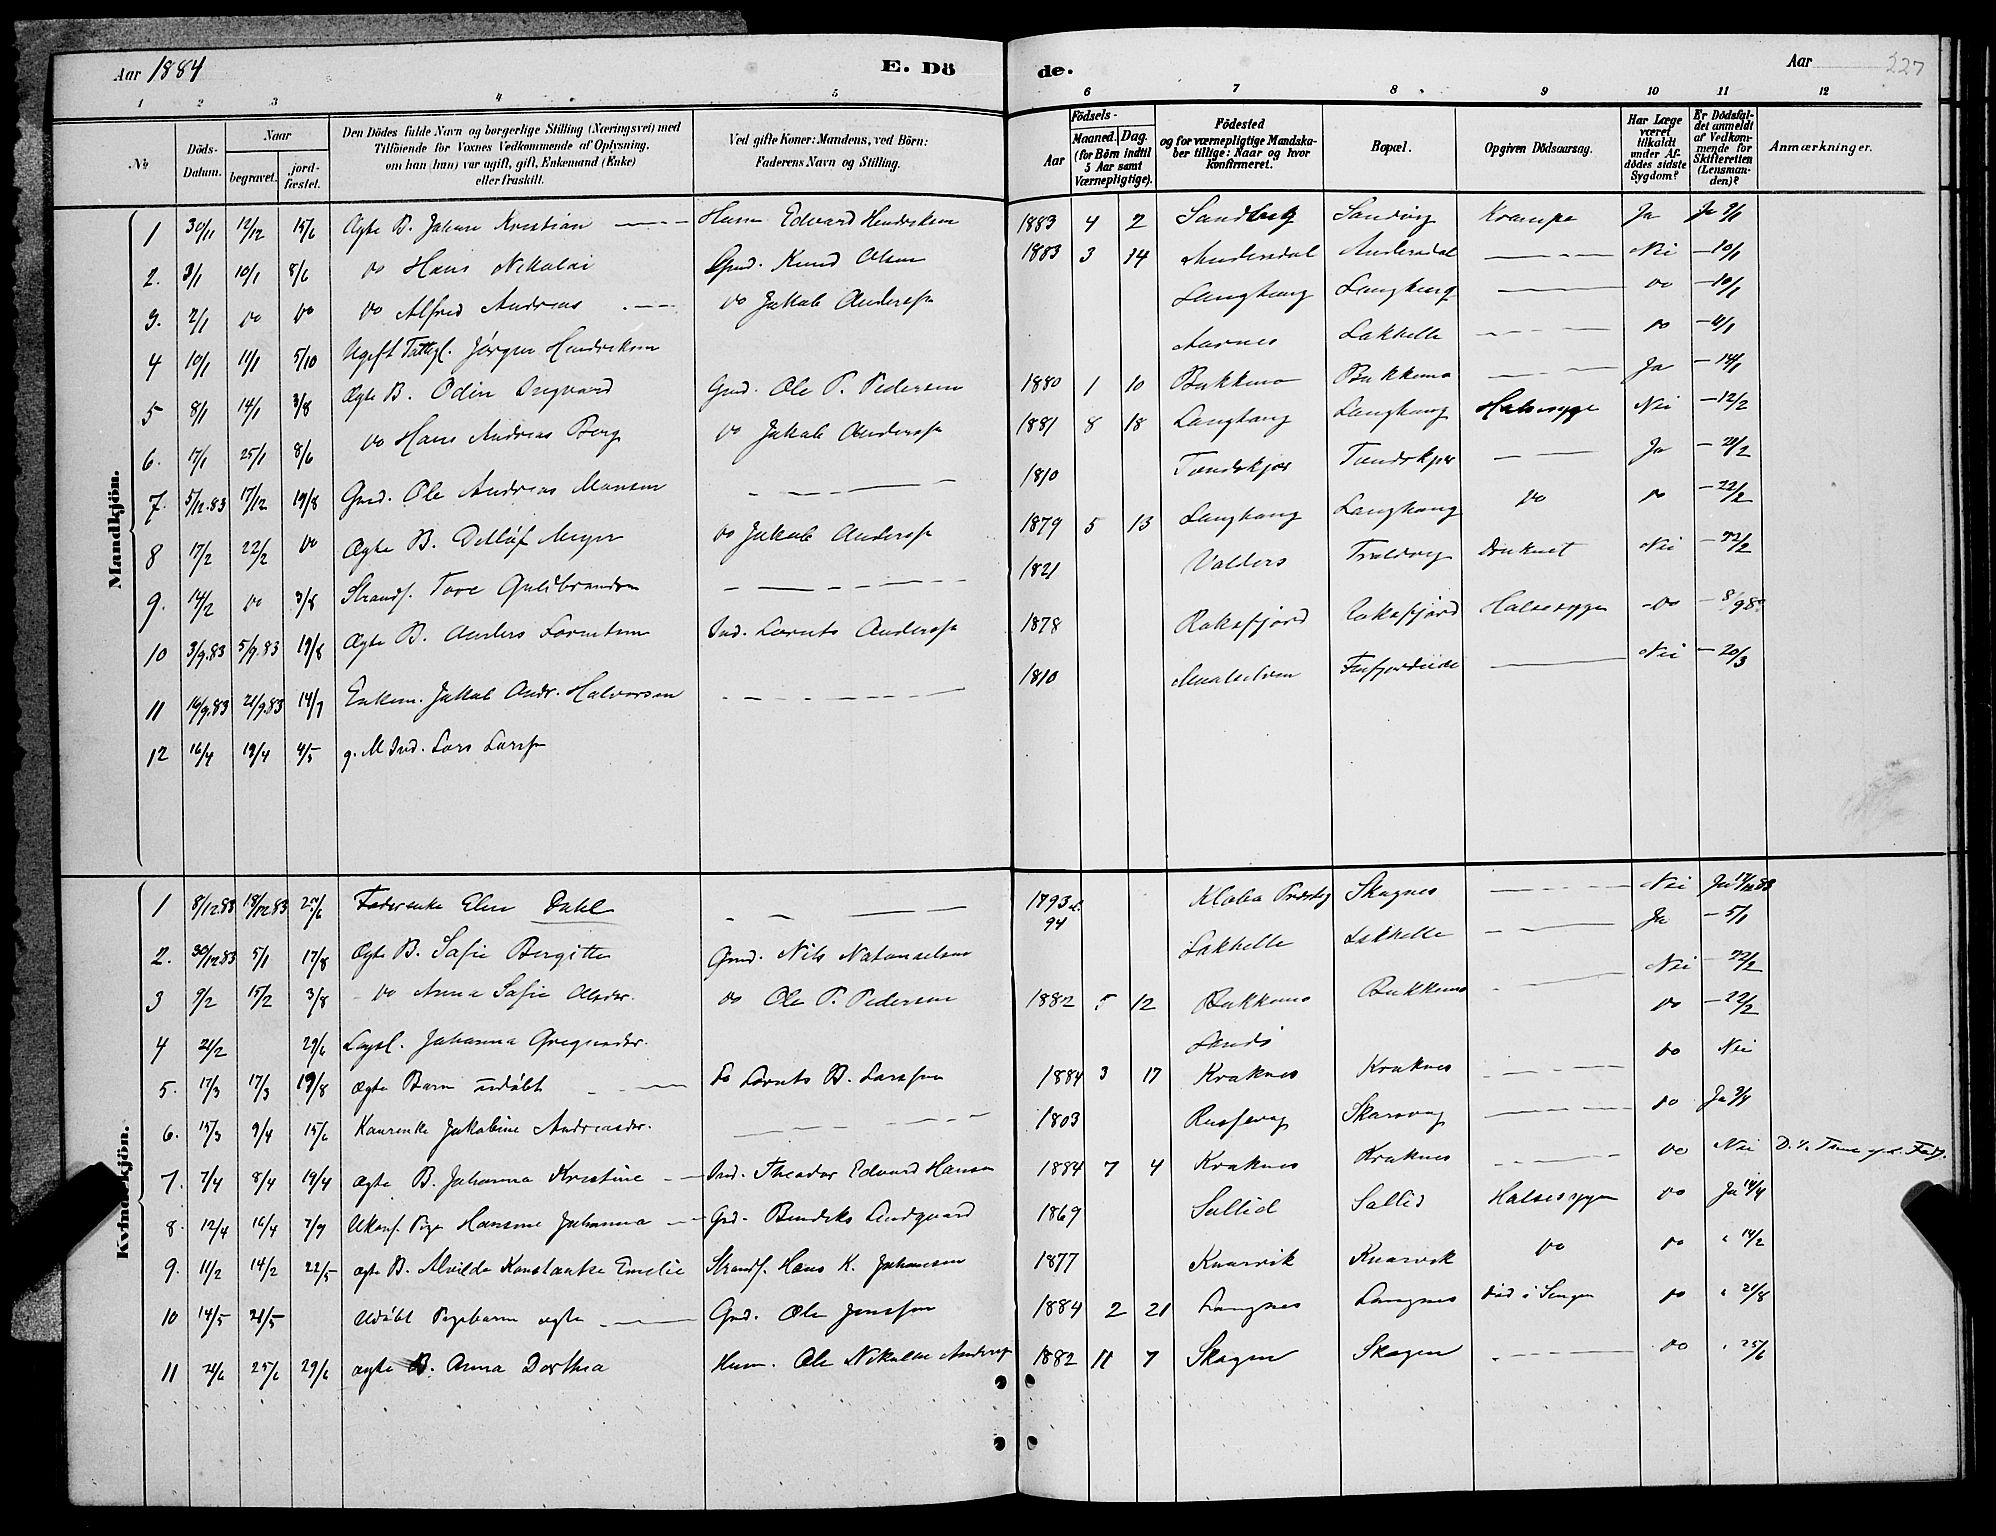 Aar 1884 E. Dö de. Aar 227
1 2 3 4 5 6 7 8 9 10 11 12
№ Döds-Datum. Naar begravet. jordfæstet. Den Dödes fulde Navn og borgerlige Stilling (Næringsvei) med Tilföiende for Voxnes Vedkommende af Oplysning, om han (hun) var ugift, gift, Enkemand (Enke) eller fraskilt. Ved gifte Koner: Mandens, ved Börn: Faderens Navn og Stilling. Födsels- Aar Maaned. Dag. (for Börn indtil 5 Aar samt Værnepligtige). Födested og for værnepligtige Mandskaber tillige: Naar og hvor konfirmeret. Bopæl. Opgiven Dödsaarsag. Har Læge været tilkaldt under Afdödes sidste Sygdom? Er Dödsfaldet anmeldt af Vedkommende for Skifteretten (Lensmanden)? Anmærkninger.
Mandkjön.
1 30/11 12/12 15/6 Ægte B. Johan Kristian — Husm Edvard Hendriksen 1883 4 2 Sandvig Krampe Ja Ja
2. 3/1 10/1 8/6 do Hans Nikolai Gmd. Knud Olsen 1883 3 14 Andersdal Andersdal — Nei — 10/1
3. 2/1 do do do Alfred Andreas — do Jakob Anderss. Langhaug Langhaug — do — 10/1
4 10/1 11/1 5/10 Ugift Fattigl. Jörgen Hendriksen Aarnes Lakselle — do — 11/1
5 8/1 14/1 3/8 Ægte B. Odin Ingvard Gmd. Ole P. Pedersen 1880 1 10 Bakkemo Bakkemo — Ja — 14/1
6. 17/1 25/1 8/6 do Hans Andreas Berg do Jakob Anderss. 1881 8 18 Langhaug Langhaug Halssyge Nei — 12/2
7. 5/12.83 17/12 19/8 Gmd. Ole Andreas Monsen — 1810 Tundskjær Tundskjær — Ja — 21/2
8 17/2 22/2 do Ægte B. Detlöf Meyer do Jakob Anderss. 1879 5 13 Langhaug Langhaug do do — 22/2
9. 14/2 do 3/8 Strands. Tore Guldbrandsen — 1821 Valders Trældvig Druknet Nei — 22/2
10 3/9.83 5/9.83 19/8 Ægte B. Anders Lorentsen Ind. Lorents Anderss. 1878 Raksfjord Raksfjord Halsesygen do
11 16/9.83 21/9.83 14/7 Enkem. Jakob Andr. Halvorsen — 1810 Maalselven Finfjordeide — Nei — 20/3
12 16/4 19/4 4/5 g. M Ind. Lars Larss.
Kvindekjön.
1 8/12.83 18/12.83 Elen Dahl — 1793 el. 94 Klæbo Skognes — Nei Ja 17/12 83
2. 30/12.83 5/1 17/8 Ægte B. Sofie Bergitte Gmd. Nils Natanaelsen Lakselle Lakselle — Ja — 5/1
3 9/2 15/2 3/8 — do Anna Sofie Olsdr. do Ole P. Pedersen 1882 5 12 Bakkemo Bakkemo — Nei — 22/2
4 21/2 29/6 Lægsl. Johanna Gregersdr. Sandö do — 22/2
5. 17/3 17/3 19/8 Ægte Barn udöbt — do Lorents B. Larssen 1884 3 17 Kraknes Kraknes — do Nei
6. 15/3 9/4 15/6 Kaarenke Jakobine Andreasdr. — 1803 Skarsvaag — do Ja 9/4
7. 7/4 8/4 19/4 Ægte B. Johanna Kristine — Ind. Theodor Edvard Hansen 1884 7 4 Kraknes Kraknes — do Nei
8. 12/4 16/4 7/9 Ukonf. Pige Hansine Johanna — Gmd. Bendiks Lindgaard 1869 Sollid Sollid Halsesygen do Ja 14/4
9. 11/2 14/2 22/5 ægte B. Alvilde Konstantse Emelie Strands. Hans K. Johansen 1877 Knarvik Knarvik do do " 14/2
10 14/5 21/5 Udöbt Pigebarn ægte — Gmd. Ole Jenssen 1884 2 21 Langnes Langnes död i Sengen do " 21/8
11 21/6 25/6 29/6 ægte B. Anna Dorthea Husm. Ole Nikolai Anderss 1882 11 7 Skogen Skogen — do " 25/6